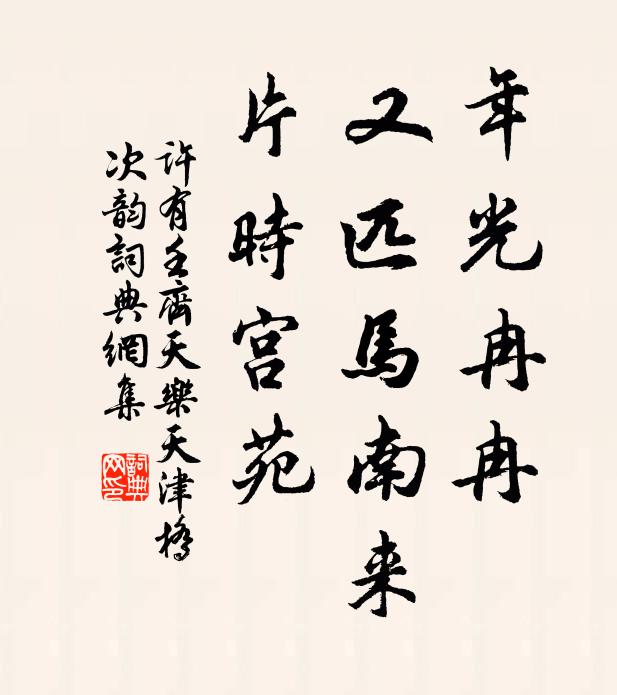 年光冉冉
又匹馬南来
片時宫苑
許有壬齊天樂天津橋
次韵詞典網集
詞典网印